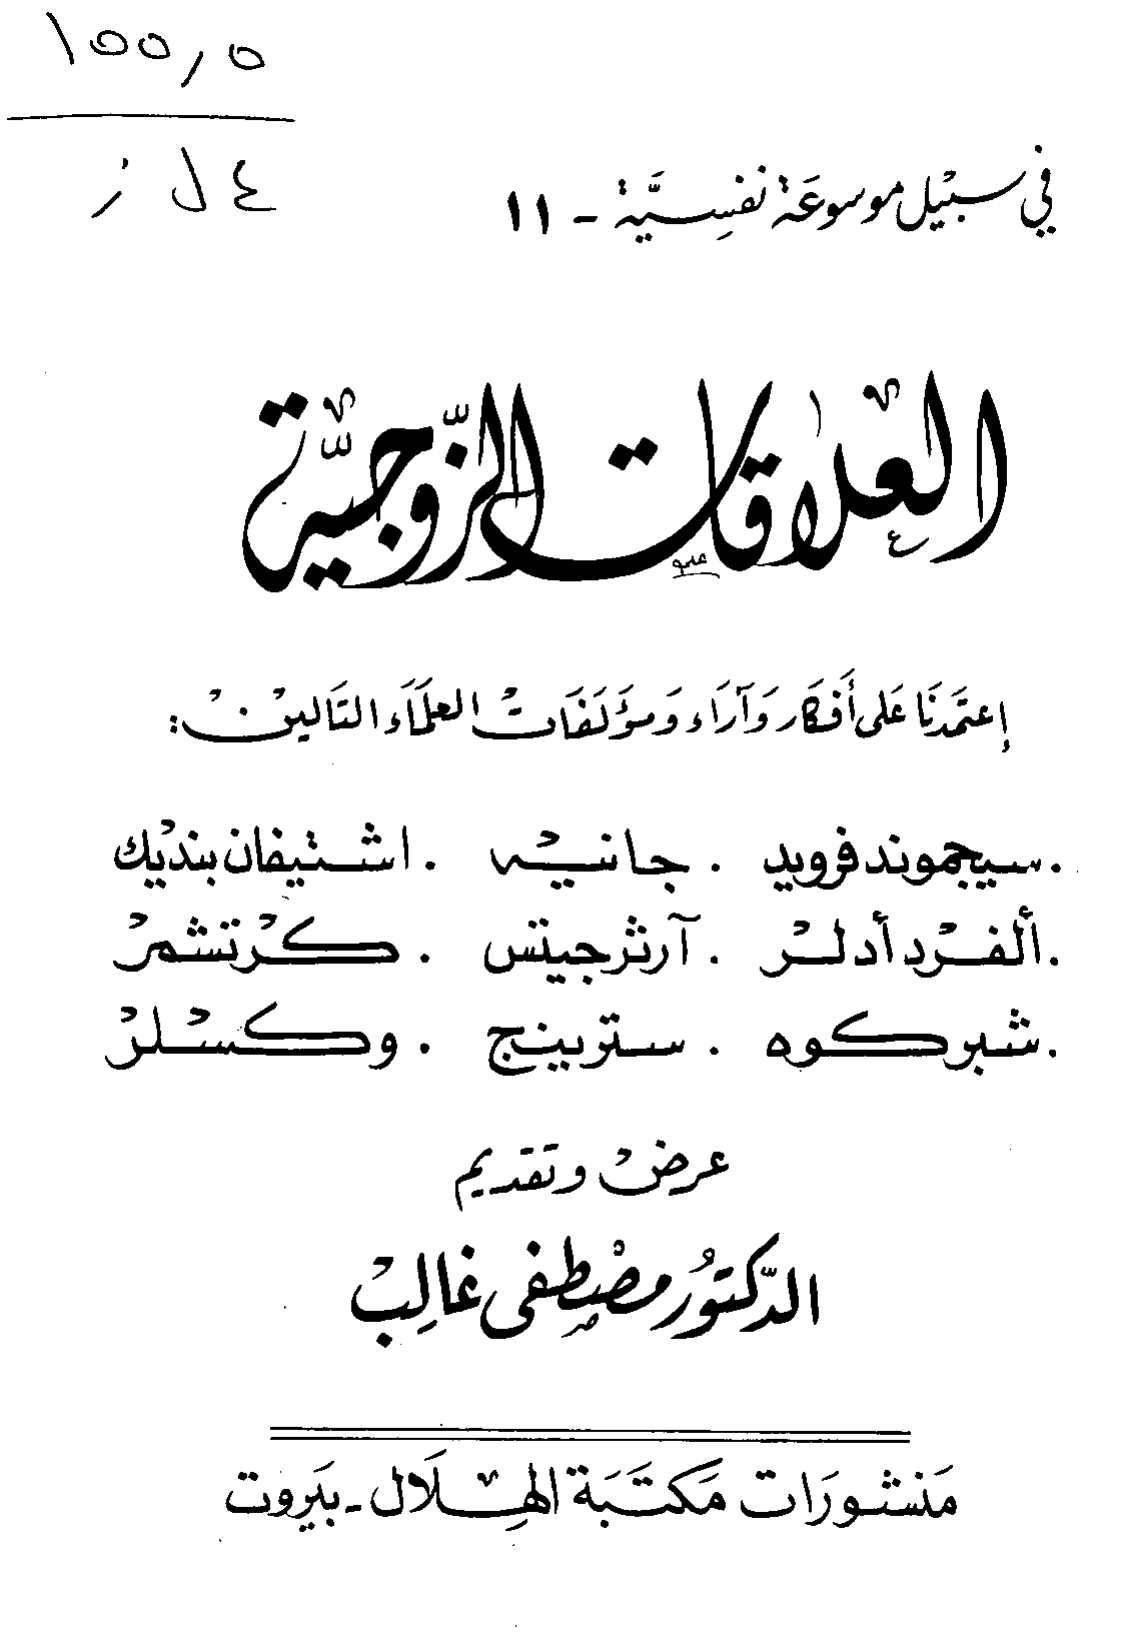 ١٥٥,٥
ع ل ز
في سبيل موسوعة نفسيَّة - ١١
العلاقات الزّوجيّة
إعتمَدنَا عَلى أَفكَار وَآرَاء وَمؤَلَفَات العلمَاء التَالين:
. سيجموند فرويد . جانيه . اشتيفان بنديك
. ألفرد أدلر . آرثر جيتس . كرتشمر
. شبركوه . سترينج . وكسلر
عرض وتقديم
الدّكتوُر مصطفى غالِب
مَنشورَات مَكتَبَة الهِلَال - بَيروت